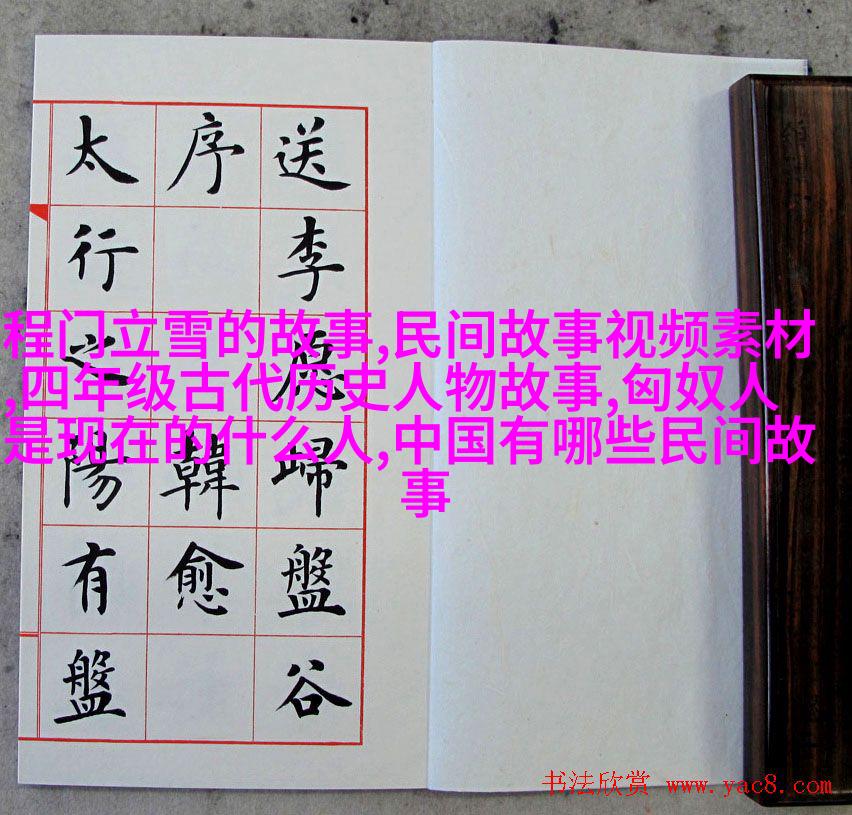 送李愿歸盤谷
序 韓愈
太行之陽有盤
程门立雪的故事,民间故事视频素材
,四年级古代历史人物故事,匈奴人
是现在的什么人,中国有哪些民间故
事
书法欣赏 www.yac8.com